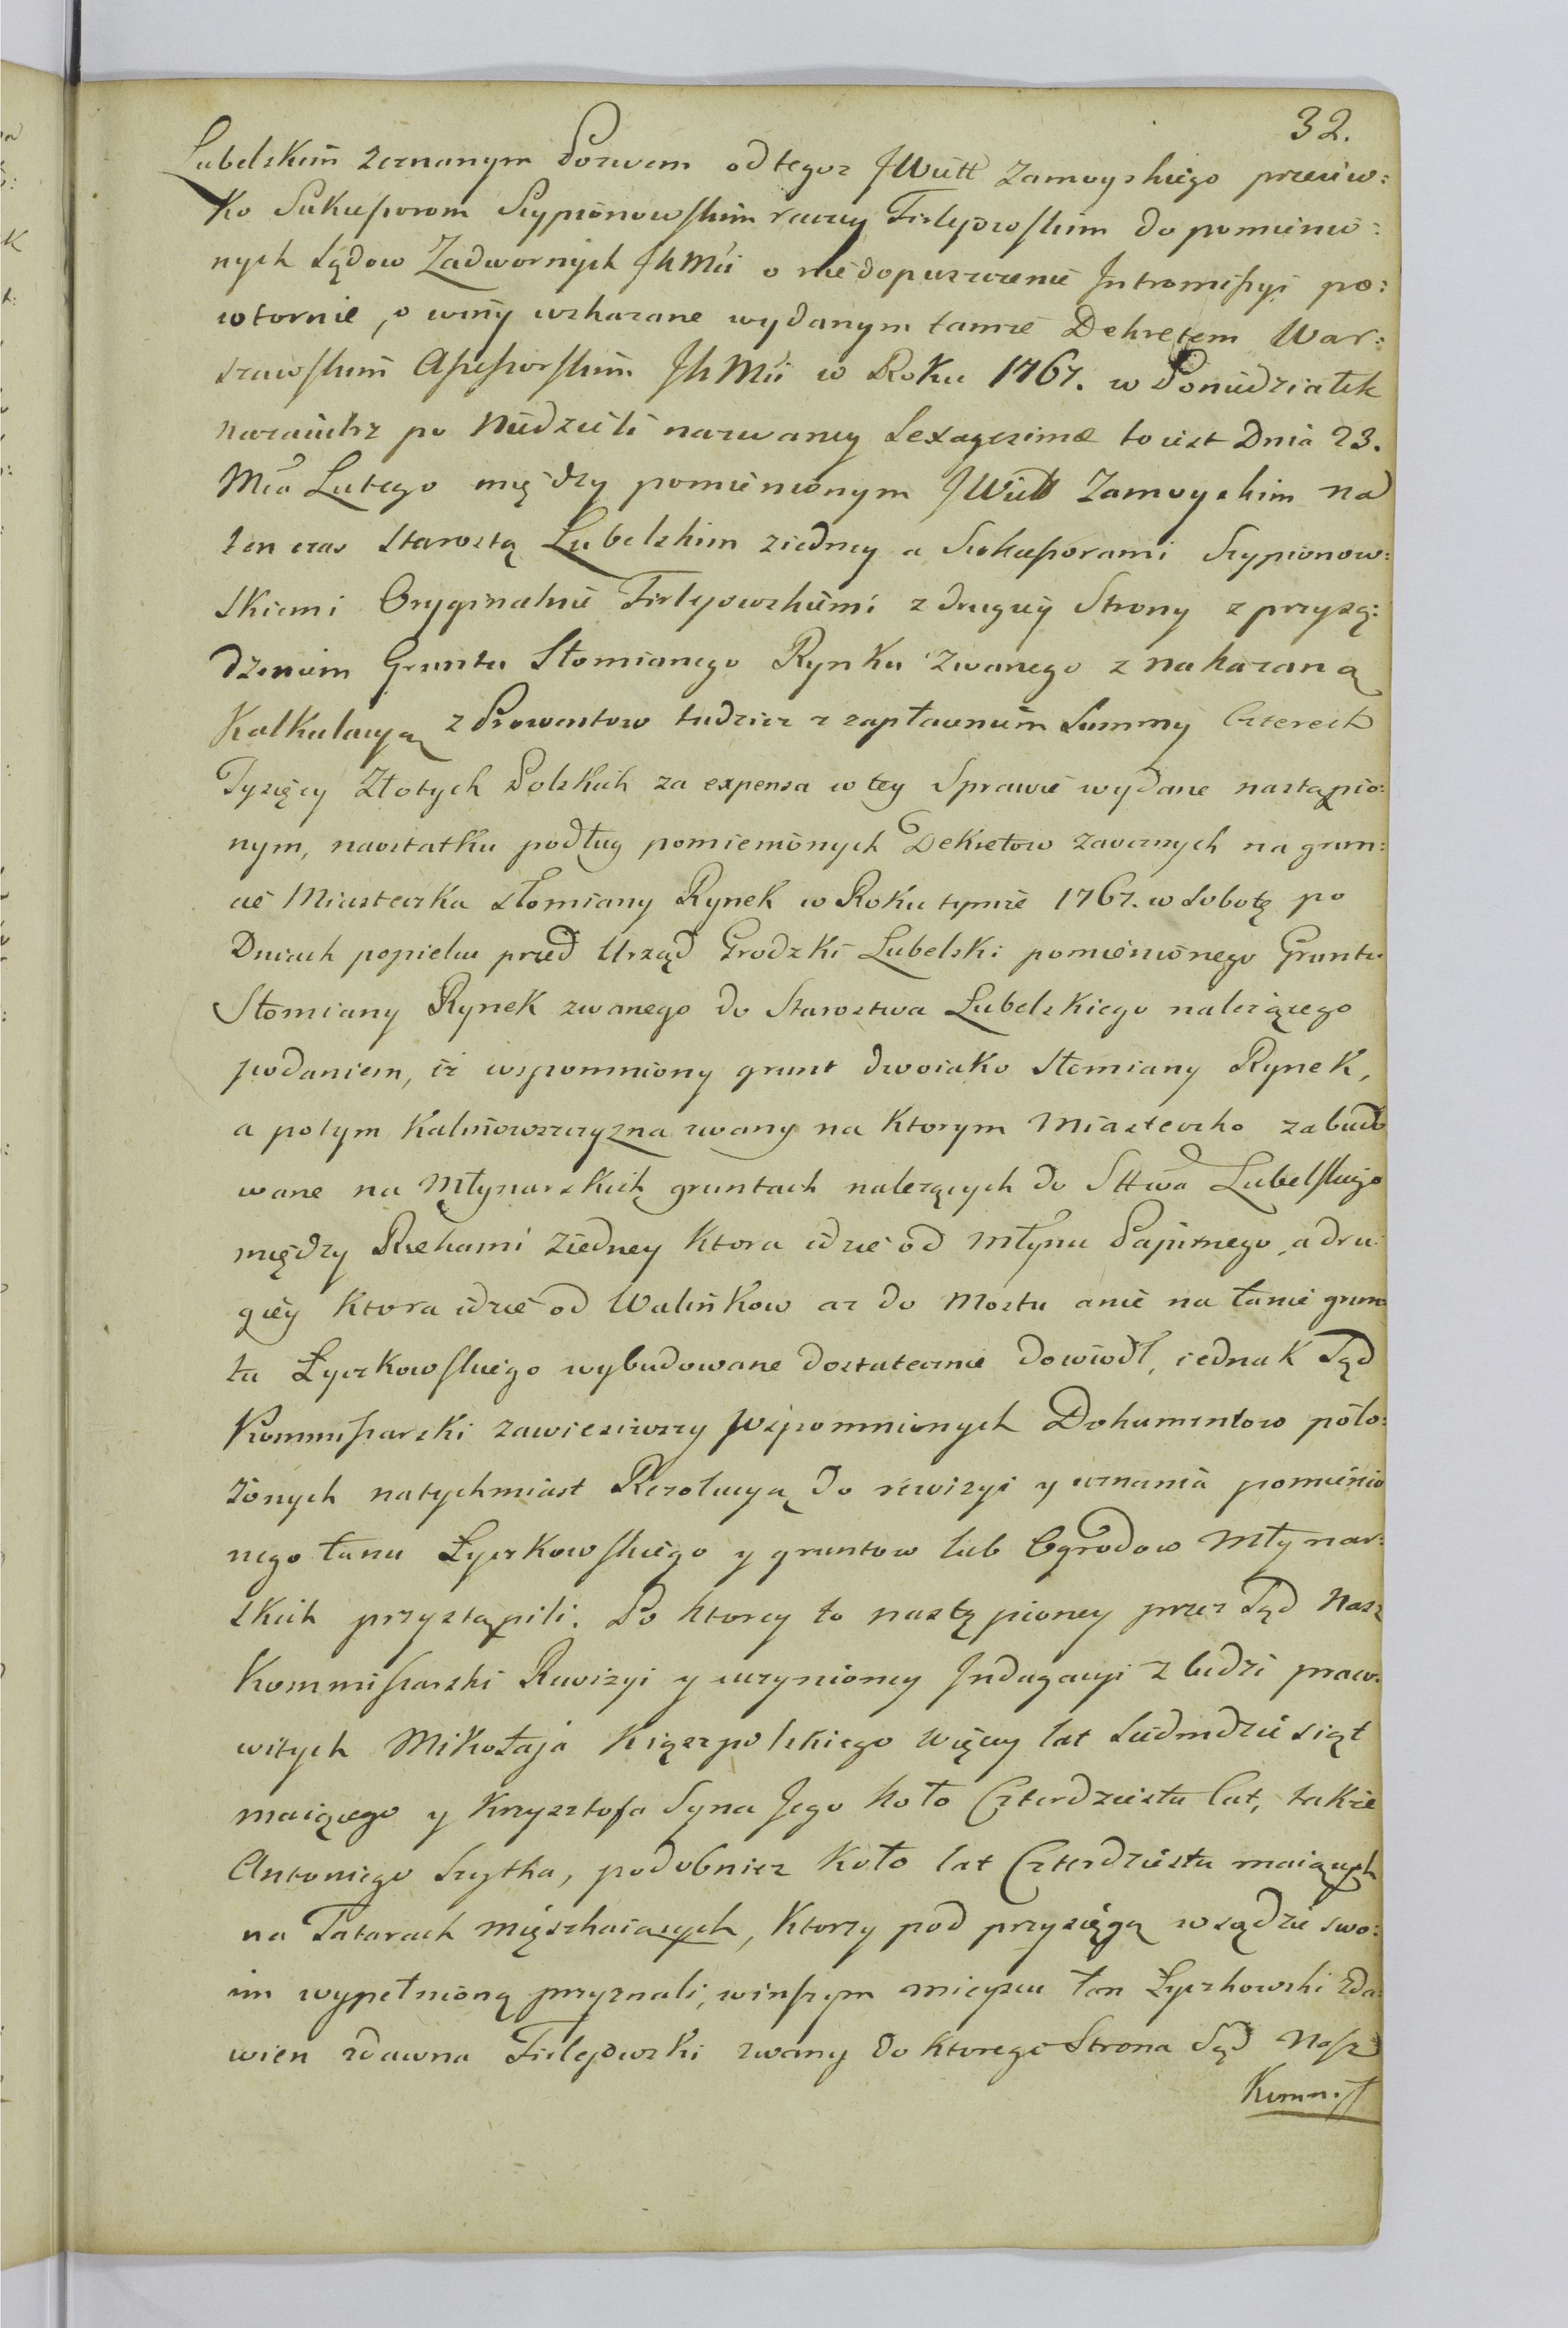 32.
Lubelskim zeznanym Pozwem od tegoz JWütt Zamoyskiego przeciw:
ko Sukcessorom Scypionowskim raczey Firleyowskim do pomienio:
nych Sądow Zadwornych JKMci o niedopuszczenie Intromissyi po:
wtornie, o winy wskazane wydanym tamże Dekretem War:
szawskim Assessorskim JKMci w Roku 1767. w Poniedziałek
nazaiutrz po Niedzieli nazwaney Sexagesimæ to iest Dnia 23.
Mca Lutego między pomienionym JWütt Zamoyskim na
ten czas Starostą Lubelskim ziedney a Sukcessorami Scypionow:
skiemi Oryginalnie Firleyowskiemi z drugiey Strony z przysą:
dzeniem Gruntu Słomianego Rynku zwanego z nakazaną
Kalkulacyą z Prowentow tudziez z zapłaceniem Summy Czterech
Tysięcy Złotych Polskich za expensa w tey Sprawie wydane nastąpio:
nym, naostatku podług pomienionych Dekretow zaocznych na grun:
cie Miasteczka Słomiany Rynek w Roku tymże 1767. w Sobotę po
Dniach popielcu przed Urząd Grodzki Lubelski pomienionego Gruntu
Słomiany Rynek zwanego do Starostwa Lubelskiego nalezącego
podaniem, iż wspomniony grunt dwoiako Słomiany Rynek,
a potym Kalinowszczyzna zwany na ktorym Miasteczko zabudo
wane na Młynarskich gruntach nalezących do Sttwa Lubelskiego
między Rzekami ziedney ktora idzie od Młynu Papirnego, a dru:
giey ktora idzie od Walinkow az do Mostu anie na łanie grun
tu Łyczkowskiego wybudowane dostatecznie dowiodł, iednak Sąd
Kommissarski zawiesiwszy wspomnionych Dokumentow poło:
żonych natychmiast Rezolucyą do rewizyi y uznania pomienio
nego łanu Łyczkowskiego y gruntow lub Ogrodow Młynar:
skich przystąpili. Po ktorey to nastąpioney przez Sąd Nasz
Kommissarski Rewizyi y uczynioney Indagacyi z ludzi praw:
witych Mikołaja Książpolskiego więcey lat Siedmdzie siąt
maiącego y Krzysztofa Syna Jego koło Czterdziestu lat, takie
Antoniego Szytka, podobniez koło lat Czterdziestu maiących
na Tatarach mięszkaiących, Ktorzy pod przysięgą w sądzie swo:
im wypełnioną przyznali, winszym mieyscu łan Łyczkowski zda
wien zdawna Firleyowski zwany do ktorego Strona Sąd Nasz
Kommiss